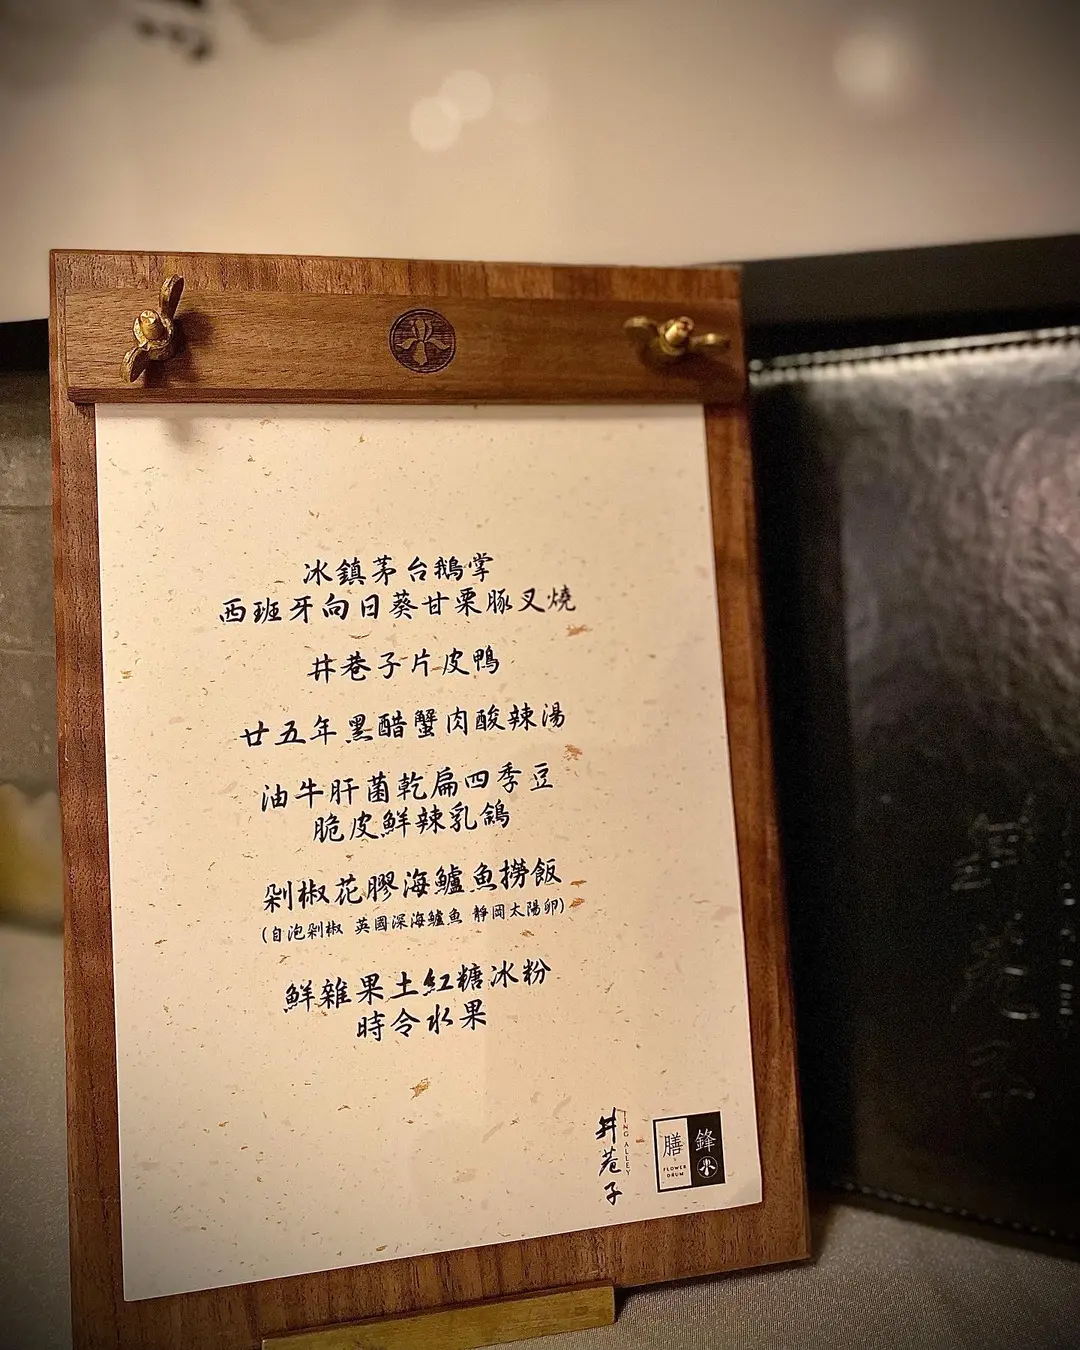 冰鎮茅台鵝掌
西班牙向日葵甘栗豚叉燒
井巷子片皮鴨
廿五年黑醋蟹肉酸辣湯
油牛肝菌乾扁四季豆
脆皮鮮辣乳鴿
剁椒花膠海鱸魚撈飯
(自泡剁椒 英國深海鱸魚 靜岡太陽卵)
鮮雜果土紅糖冰粉
時令水果
井巷子
TING ALLEY
膳 鋒
FLOWER
DRUM